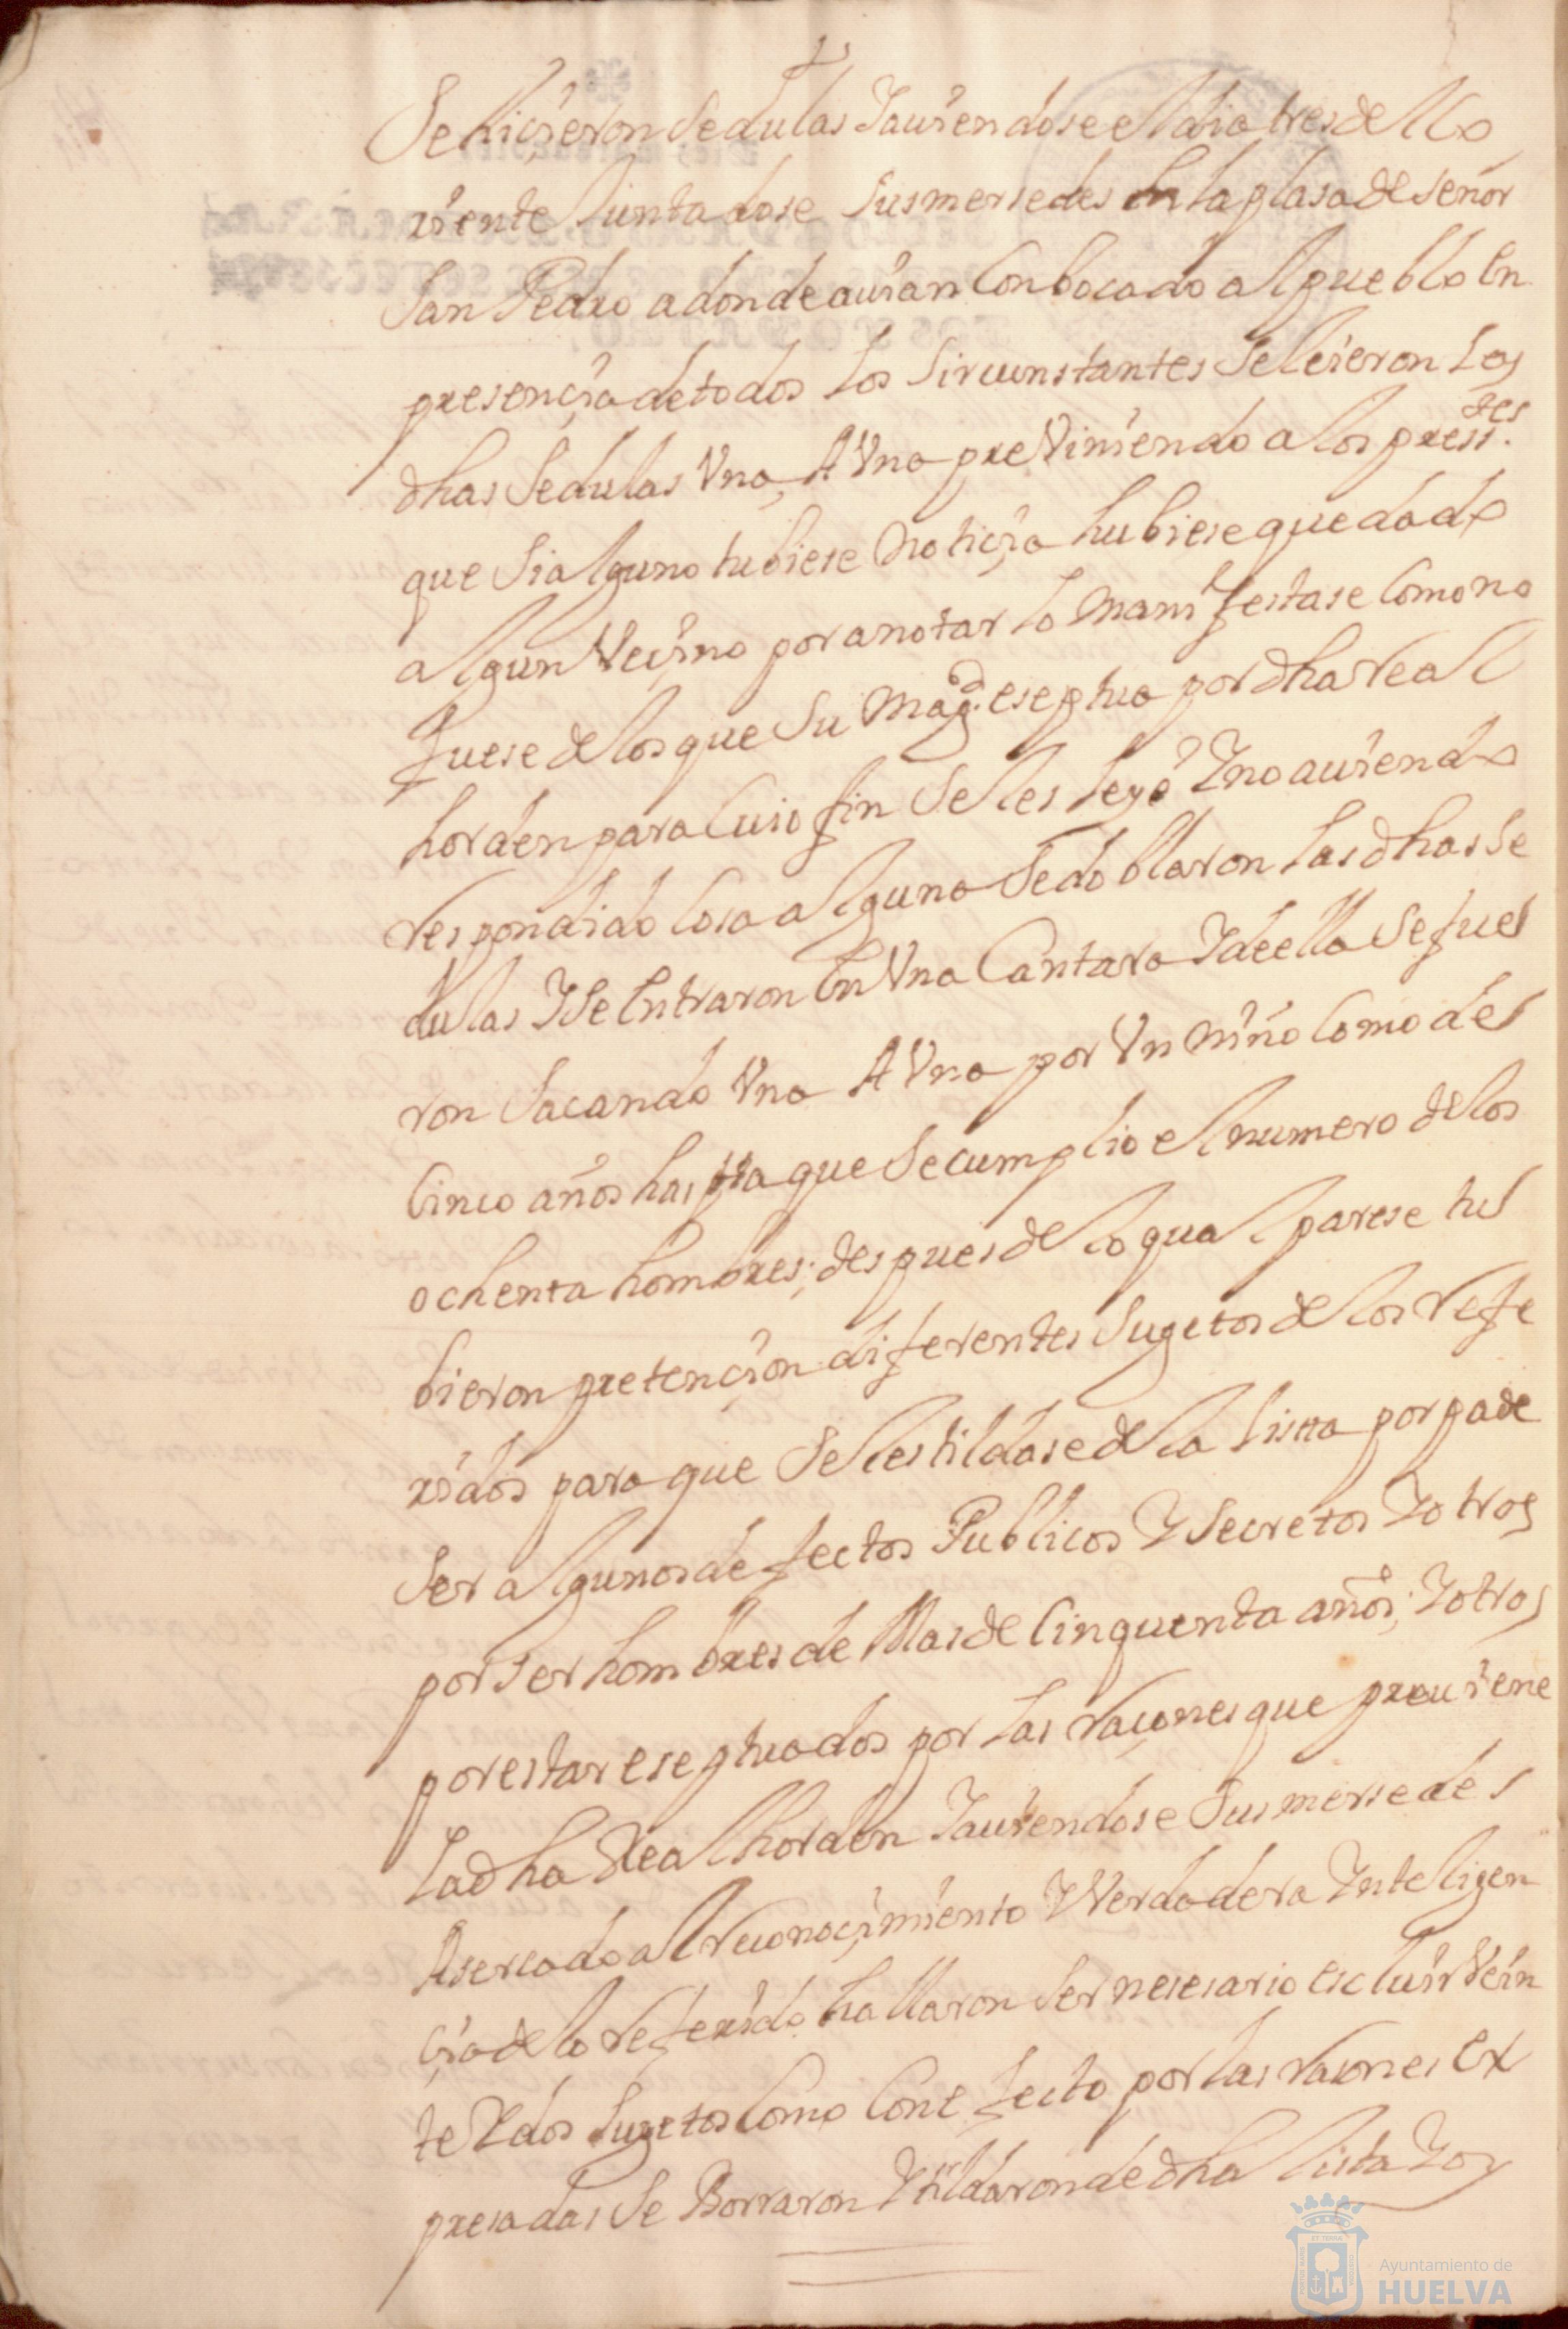 Se hicieron Sedulas Y auiendose el dia tres de el Co
rriente Juntadose Sus mersedes En la plasa de señor
San Pedro a donde auian Conbocado al pueblo En
presençia de todos los Sircunstantes Se leieron las
dhas Sedulas Vna A Vna preViniendo a los press.tes
que Si alguno tubiese Notiçia hubiese quedado
algun Veçino por anotar lo Manifestase Como no
fuese de los que Su Magd. eseptua por dha real
horden para Cuio fin Se les leyó Y no auiendo
respondido Cosa alguna Se doblaron las dhas Se
dulas Y Se Entraron En Vna Cantara Y de ella Se fue
ron Sacando Vna A Vna por Vn Niño Como de
Cinco años hasta que Se cumplio el numero de los
ochenta hombres; despues de lo qual parese tu
bieron pretençion diferentes Sugetos de los refe
ridos para que Se les tildase de la lista por pade
Ser algunos defectos Publicos Y Secretos Y otros
por Ser hombres de Mas de Cinquenta años; Y otros
por estar eseptuados por las raçones que preuiene
la dha Real horden Y auiendose Sus mersedes
Asercado al reconoçimiento Y Verdadera Inteligen
çia de lo referido hallaron Ser nesesario escluir Vein
te Y dos Sugetos Como Con efecto por las rasones Ex
presadas Se Borraron Y tildaron de dha lista Y oy
Ayuntamiento de
HUELVA